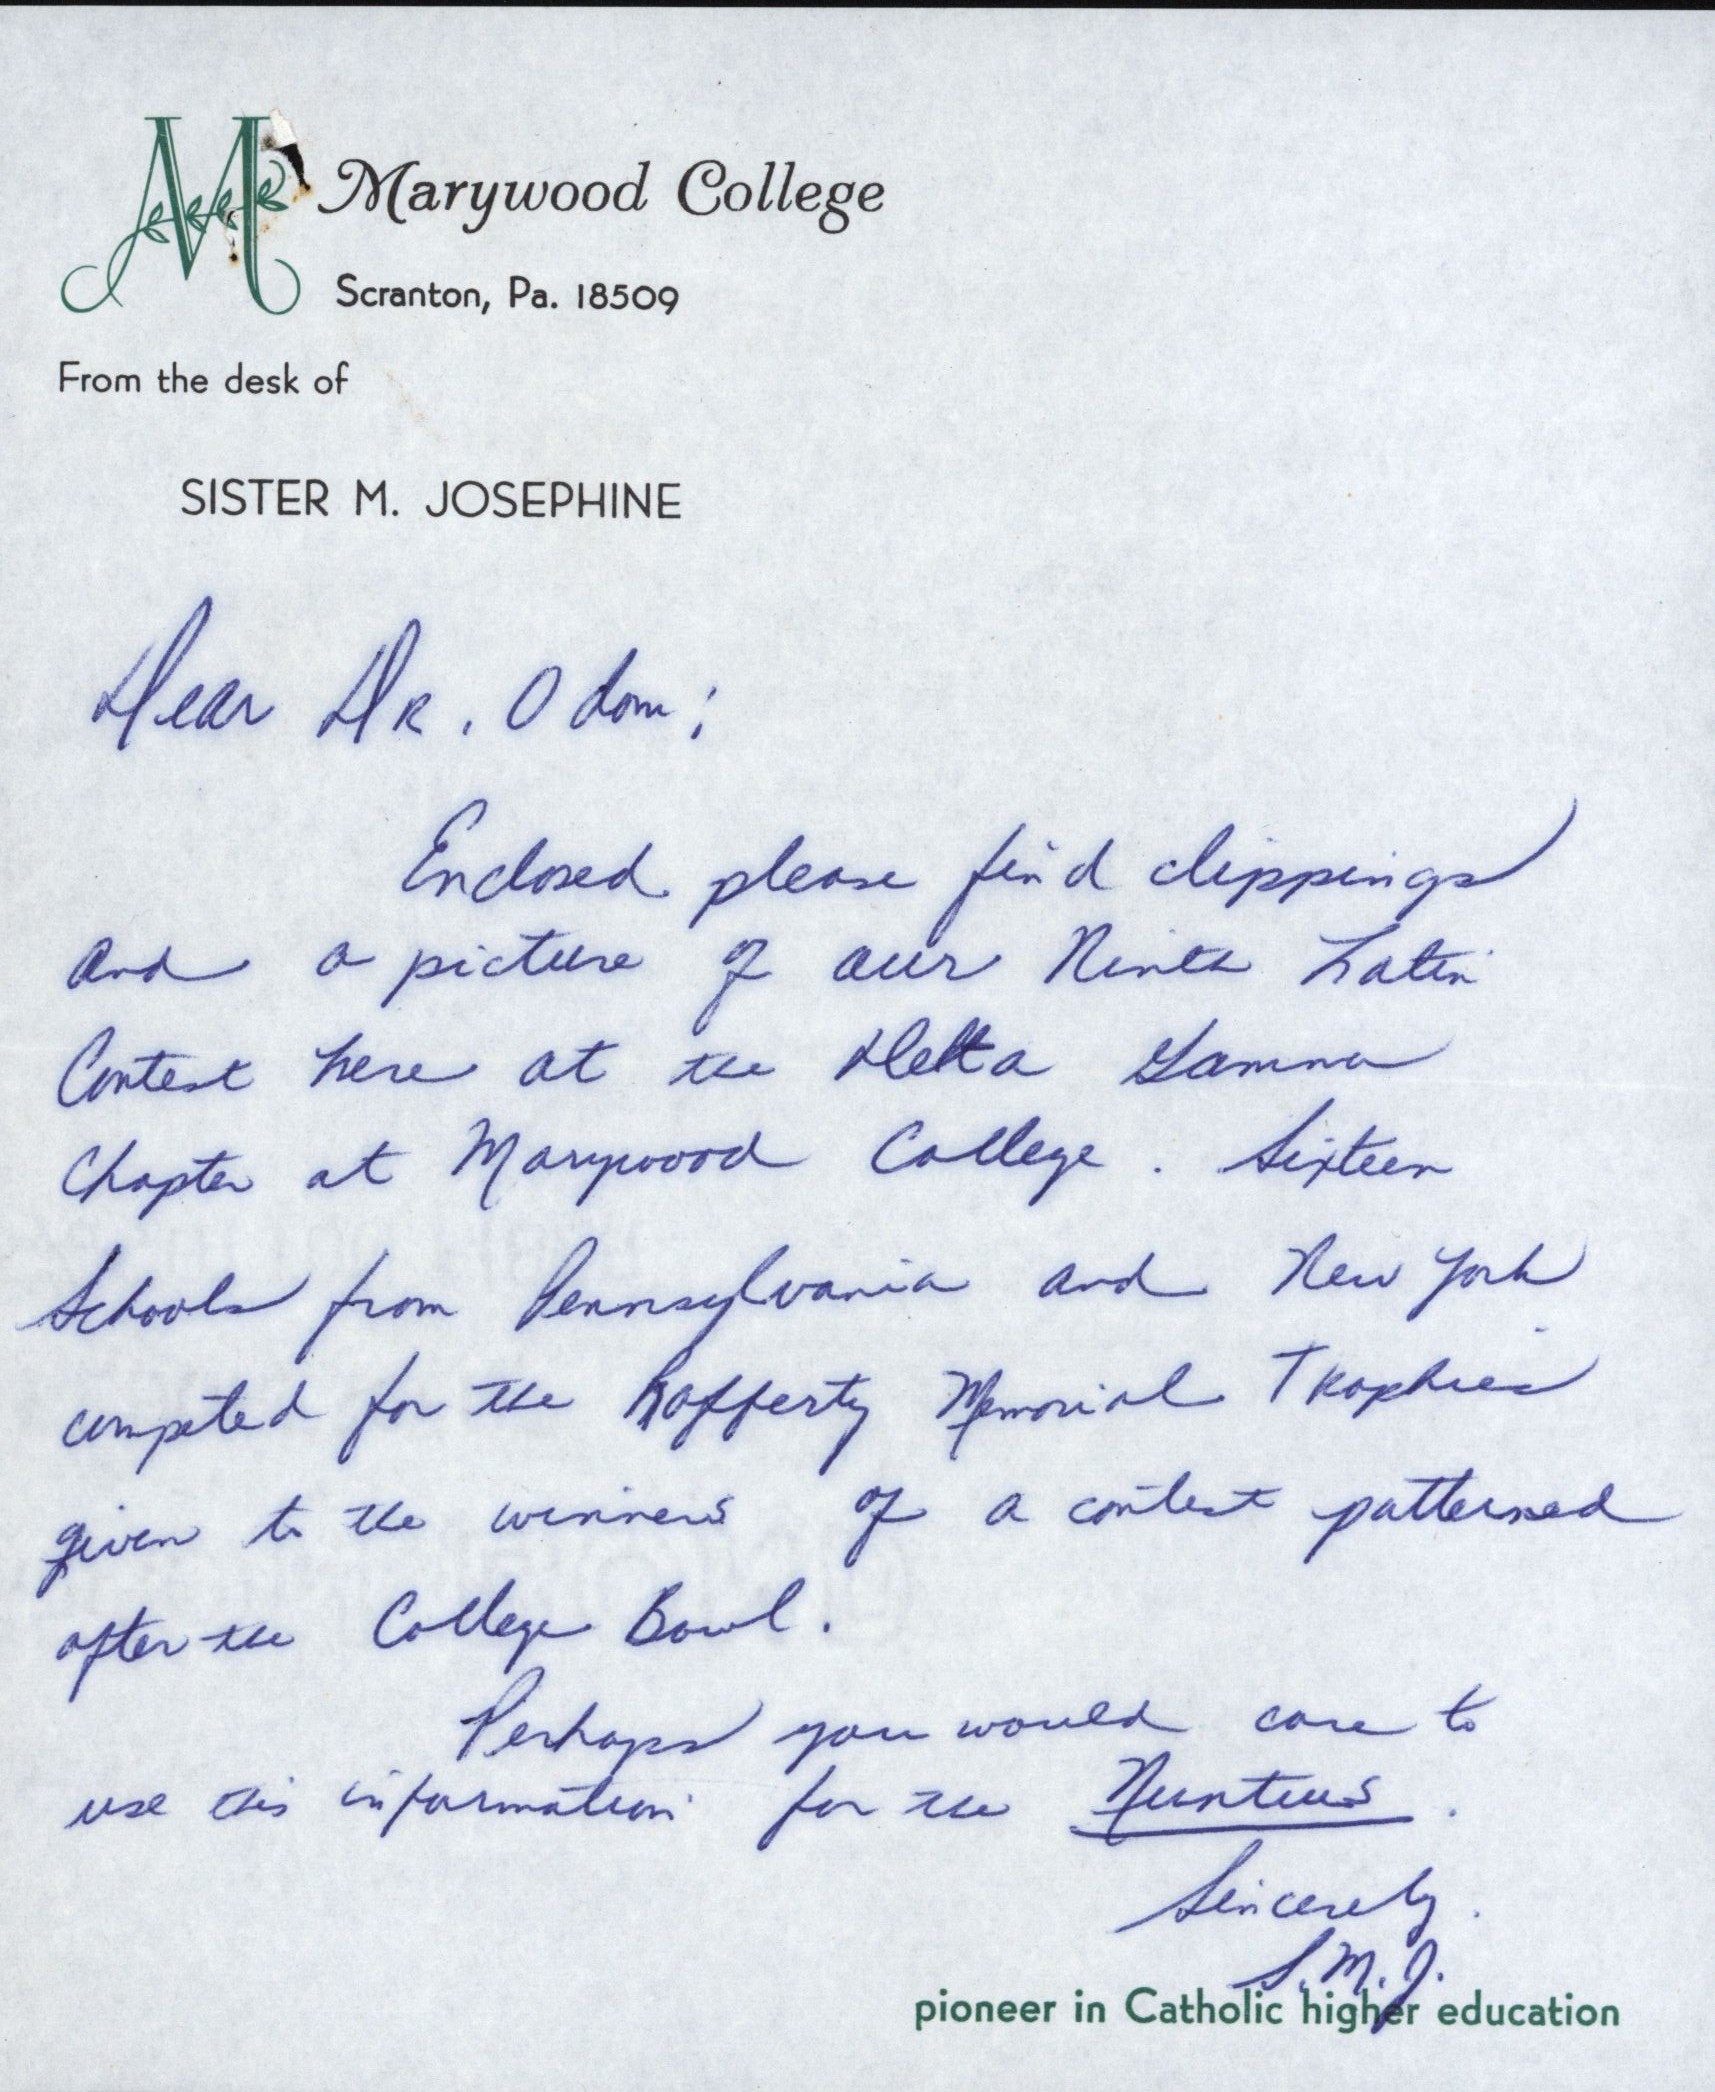 M Marywood College
Scranton, Pa. 18509
From the desk of
SISTER M. JOSEPHINE
Dear Dr. Odom;
Enclosed please find clippings
and a picture of our Ninth Latin
Contest here at the Delta Gamma
Chapter at Marywood College. Sixteen
Schools from Pennsylvania and New York
competed for the Rafferty Memorial Trophies
given to the winners of a contest patterned
after the College Bowl.
Perhaps you would care to
use this information for the Nuntius.
Sincerely.
S.M.J.
pioneer in Catholic higher education